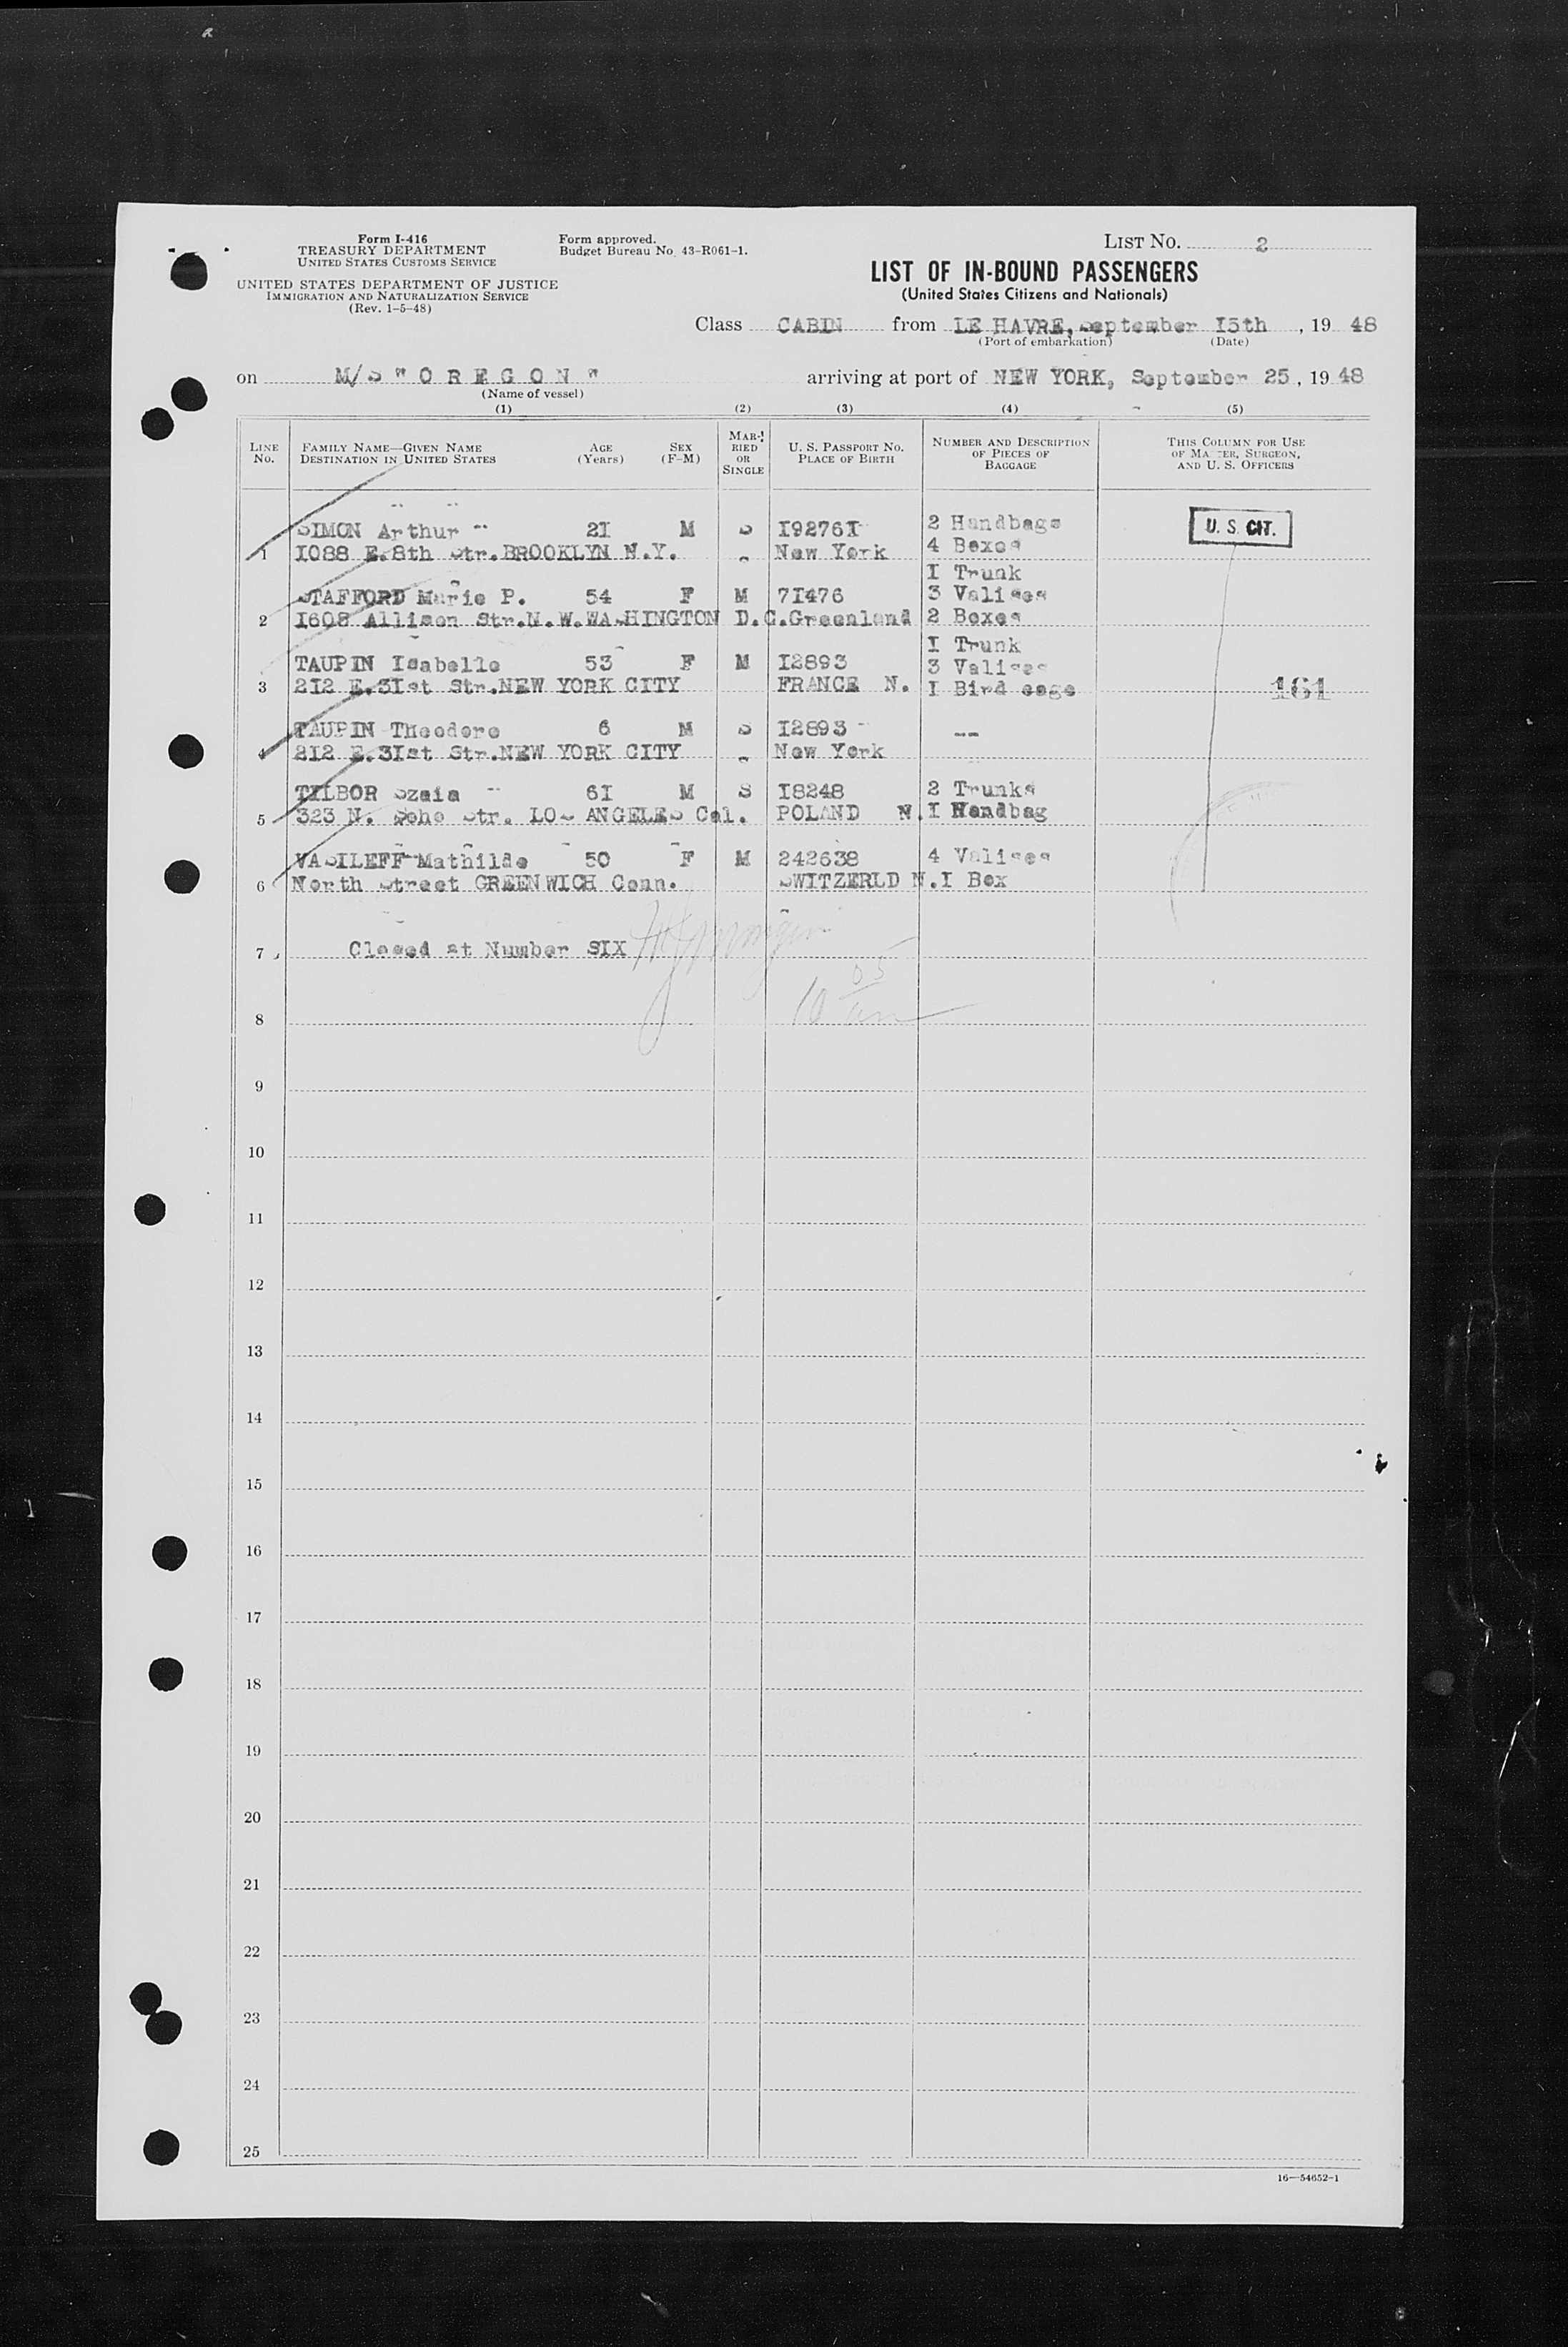 Form I-416
TREASURY DEPARTMENT
UNITED STATES CUSTOMS SERVICE
UNITED STATES DEPARTMENT OF JUSTICE
IMMIGRATION AND NATURALIZATION SERVICE
(Rev. 1-5-48)
Form approved.
Budget Bureau No. 43-R061-1.
LIST NO. 2
LIST OF IN-BOUND PASSENGERS
(United States Citizens and Nationals)
Class CABIN from LE HAVRE, September I5th, 19 48
(Port of embarkation) (Date)
on M/S "O R E G O N" arriving at port of NEW YORK, September 25, 19 48
(Name of vessel)
(1) (2) (3) (4) (5)
LINE No.
FAMILY NAME—GIVEN NAME
DESTINATION IN UNITED STATES
AGE (Years)
SEX (F-M)
MARRIED OR SINGLE
U. S. PASSPORT NO.
PLACE OF BIRTH
NUMBER AND DESCRIPTION OF PIECES OF BAGGAGE
THIS COLUMN FOR USE OF MASTER, SURGEON, AND U. S. OFFICERS
SIMON Arthur 2I M S I9276I 2 Handbags U. S. CIT.
1 I088 E.8th Str.BROOKLYN N.Y. New York 4 Boxes
I Trunk
STAFFORD Marie P. 54 F M 7I476 3 Valises
2 I608 Allison Str.N.W.WASHINGTON D.C.Greenland 2 Boxes
I Trunk
TAUPIN Isabelle 53 F M I2893 3 Valises
3 2I2 E.3Ist Str.NEW YORK CITY FRANCE N. I Bird cage 161
TAUPIN Theodore 6 M S I2893 --
4 2I2 E.3Ist Str.NEW YORK CITY New York
TILBOR Szaia 6I M S I8248 2 Trunks
5 323 N. Soho Str. LOS ANGELES Cal. POLAND N. I Handbag
VASILEFF Mathilde 50 F M 242638 4 Valises
6 North Street GREENWICH Conn. SWITZERLD N. I Box
7 Closed at Number SIX
10 05 am
8
9
10
11
12
13
14
15
16
17
18
19
20
21
22
23
24
25
16—54652-1